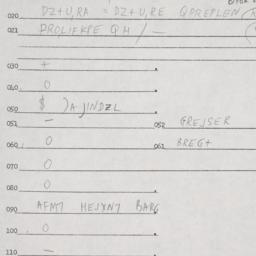 020 DZ+U,RA = DZ+U,RE QDREPLEN
021 DROLIFKPE QH / —
030 +
040 0
050 $ )A JINDZL
051 — 052 GREJSER
060 0 061 BREG+
070 0
080 0
090 AFMT HEJXNT BARG
100 0
110 —